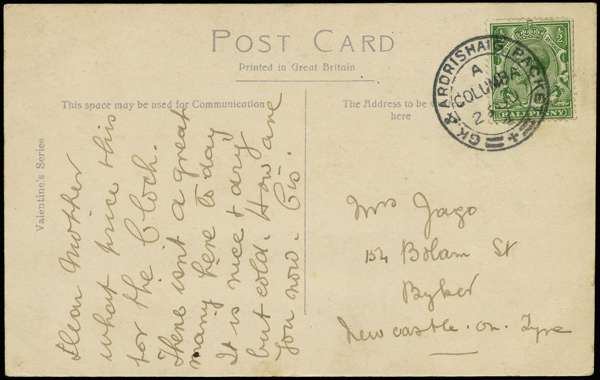 POST CARD
Printed in Great Britain
This space may be used for Communication
The Address to be
here
Valentine's Series
GK & ARDRISHAIG PACKET
A
COLUMBA
HALFPENNY
Dear Mother
what price this
for the Cloch.
There isn't a great
many here to day
It is nice & airy
but cold. How are
you now.
Mrs Jago
154 Bolam St
Byker
Newcastle-on-Tyne